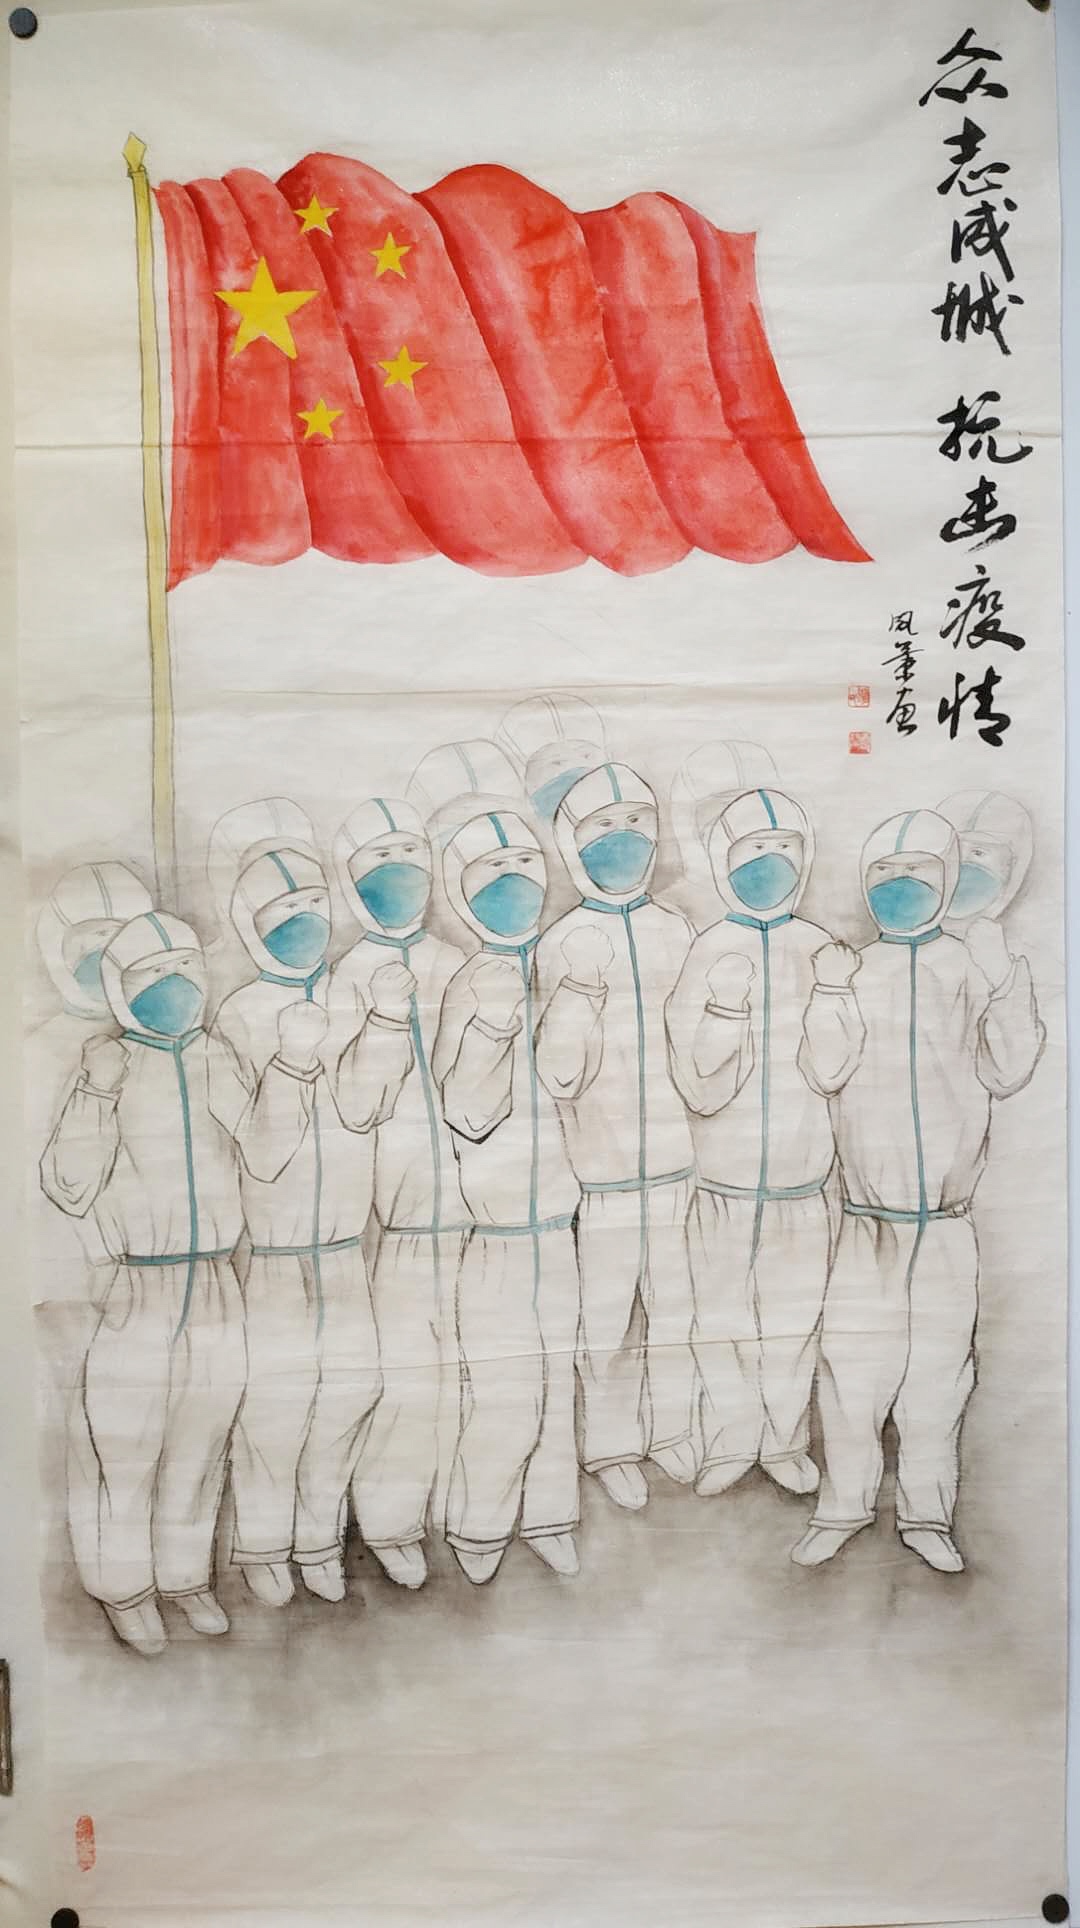 众志成城 抗击疫情
凤葉画